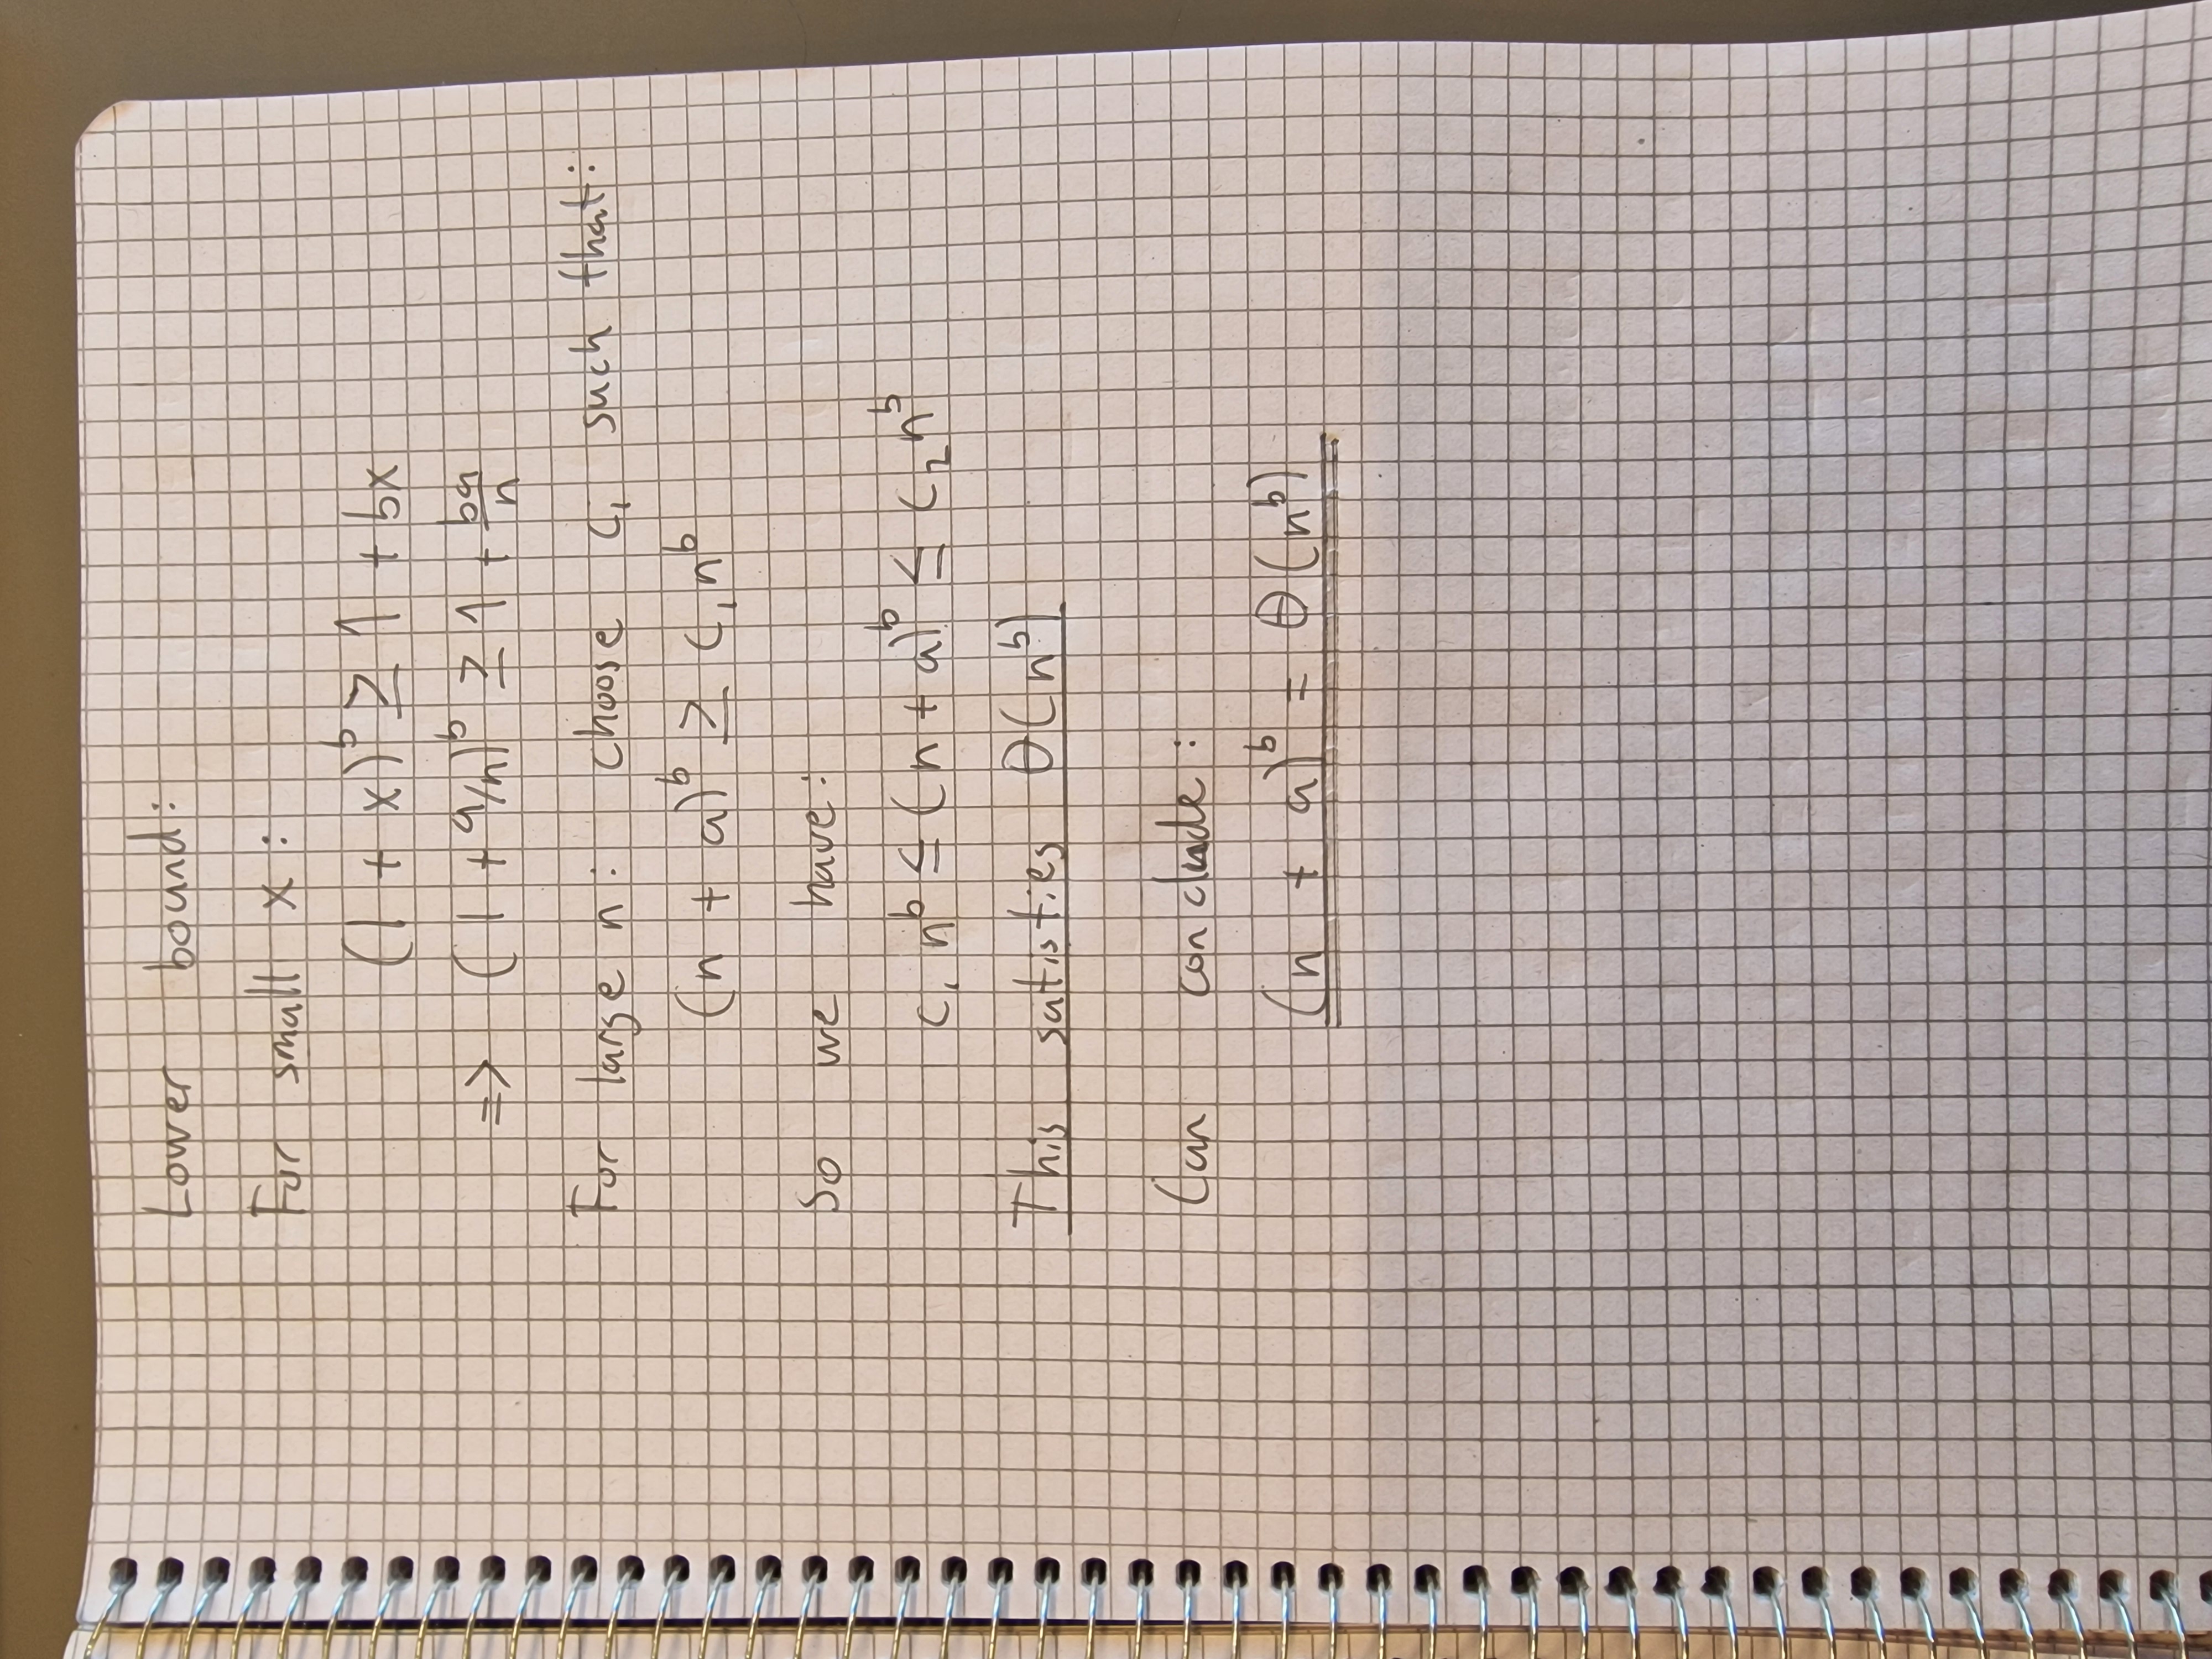 Lower bound:
For small x:
(1 + x)^b ≥ 1 + bx
=> (1 + a/n)^b ≥ 1 + ba/n
For large n: choose c₁ such that:
(n + a)^b ≥ c₁n^b
So we have:
c₁ n^b ≤ (n + a)^b ≤ c₂n^b
This satisfies Θ(n^b)
Can conclude:
(n + a)^b = Θ(n^b)